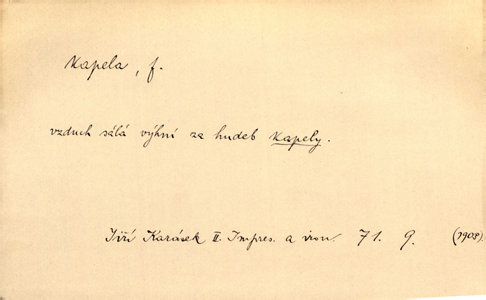 Kapela, f.
vzduch sálá výhní za hudeb kapely.
Jiří Karásek II. Impres. a iron. 71. 9. (1908).